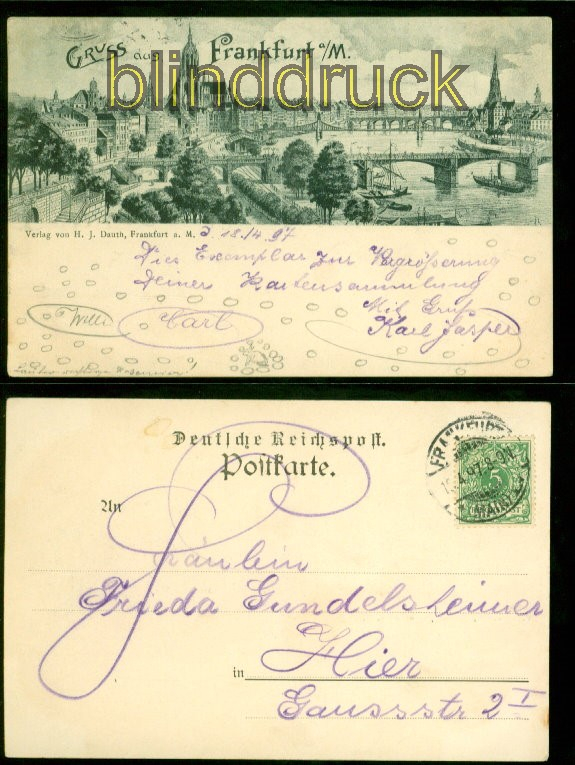 Gruss aus Frankfurt a/M.
blinddruck
Verlag von H. J. Dauth, Frankfurt a. M. d. 18./4 97
Dies Exemplar zur Vergrößerung
Deiner Kartensammlung
Mit Gruß
Willi Carl Karl Jasper
Deutsche Reichspost.
Postkarte.
FRANKFURT
5
An Fräulein
Frieda Gundelsheimer
in Hier
Gaussstr 2 I